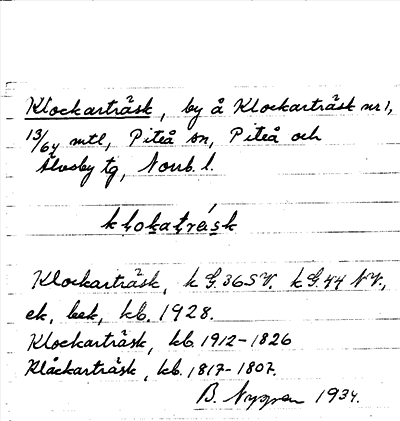 Klockarträsk, by å Klockarträsk nr 1,
13/64 mtl, Piteå sn, Piteå och
Älvsby tg, Norrb. l.
klokaträsk
Klockarträsk, k G.36 SV. k G.44 NV.,
ek, bek, kb. 1928.
Klockarträsk, kb. 1912-1826
Klåckarträsk, kb. 1817-1807.
B. 1934.